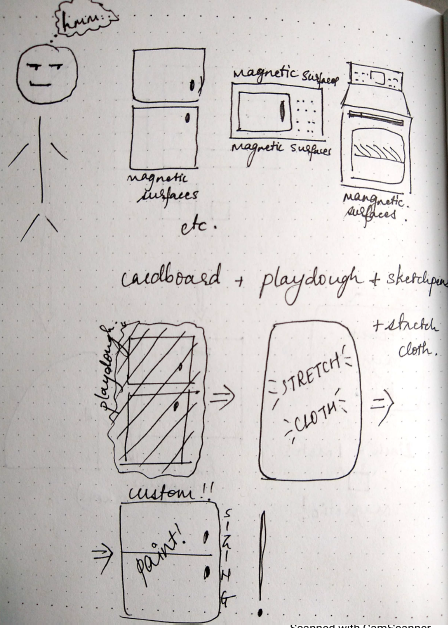 hmm...
magnetic surfaces
magnetic surfaces
magnetic
surfaces
mangnetic
surfaces.
etc.
cardboard + playdough + sketchpens
+ stretch
cloth.
playdough.
STRETCH
CLOTH
custom!!
SIZING
paint!
Scanned with CamScanner